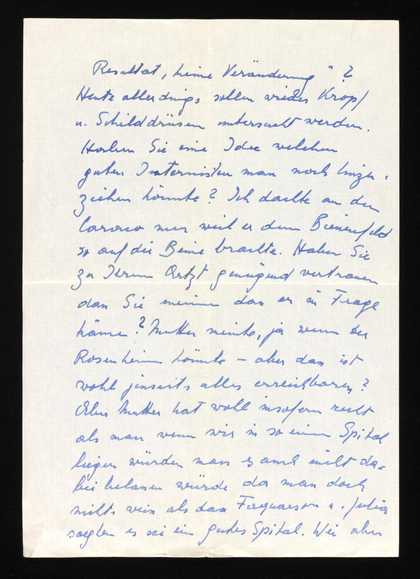 Resultat, keine Veränderung" ?
Heute allerdings sollen wieder Kropf
u. Schilddrüsen untersucht werden.
Haben Sie eine Idee welchen
guten Internisten man noch hinzu-
ziehen könnte? Ich dachte an den
nur weil er dem Bienenfeld
so auf die Beine brachte. Haben Sie
zu Ihrem Arzt genügend vertrauen
dass Sie meinen das er in Frage
käme? Mutter meinte, ja wenn der
Rosenheim könnte – aber das ist
wohl jenseits alles erreichbaren?
Aber Mutter hat wohl insofern recht
als man wenn wir in so einem Spital
liegen würden man es auch nicht da-
bei belassen würde das man doch
nichts weis als das u. Julia
sagten es sei ein gutes Spital. Wir aber